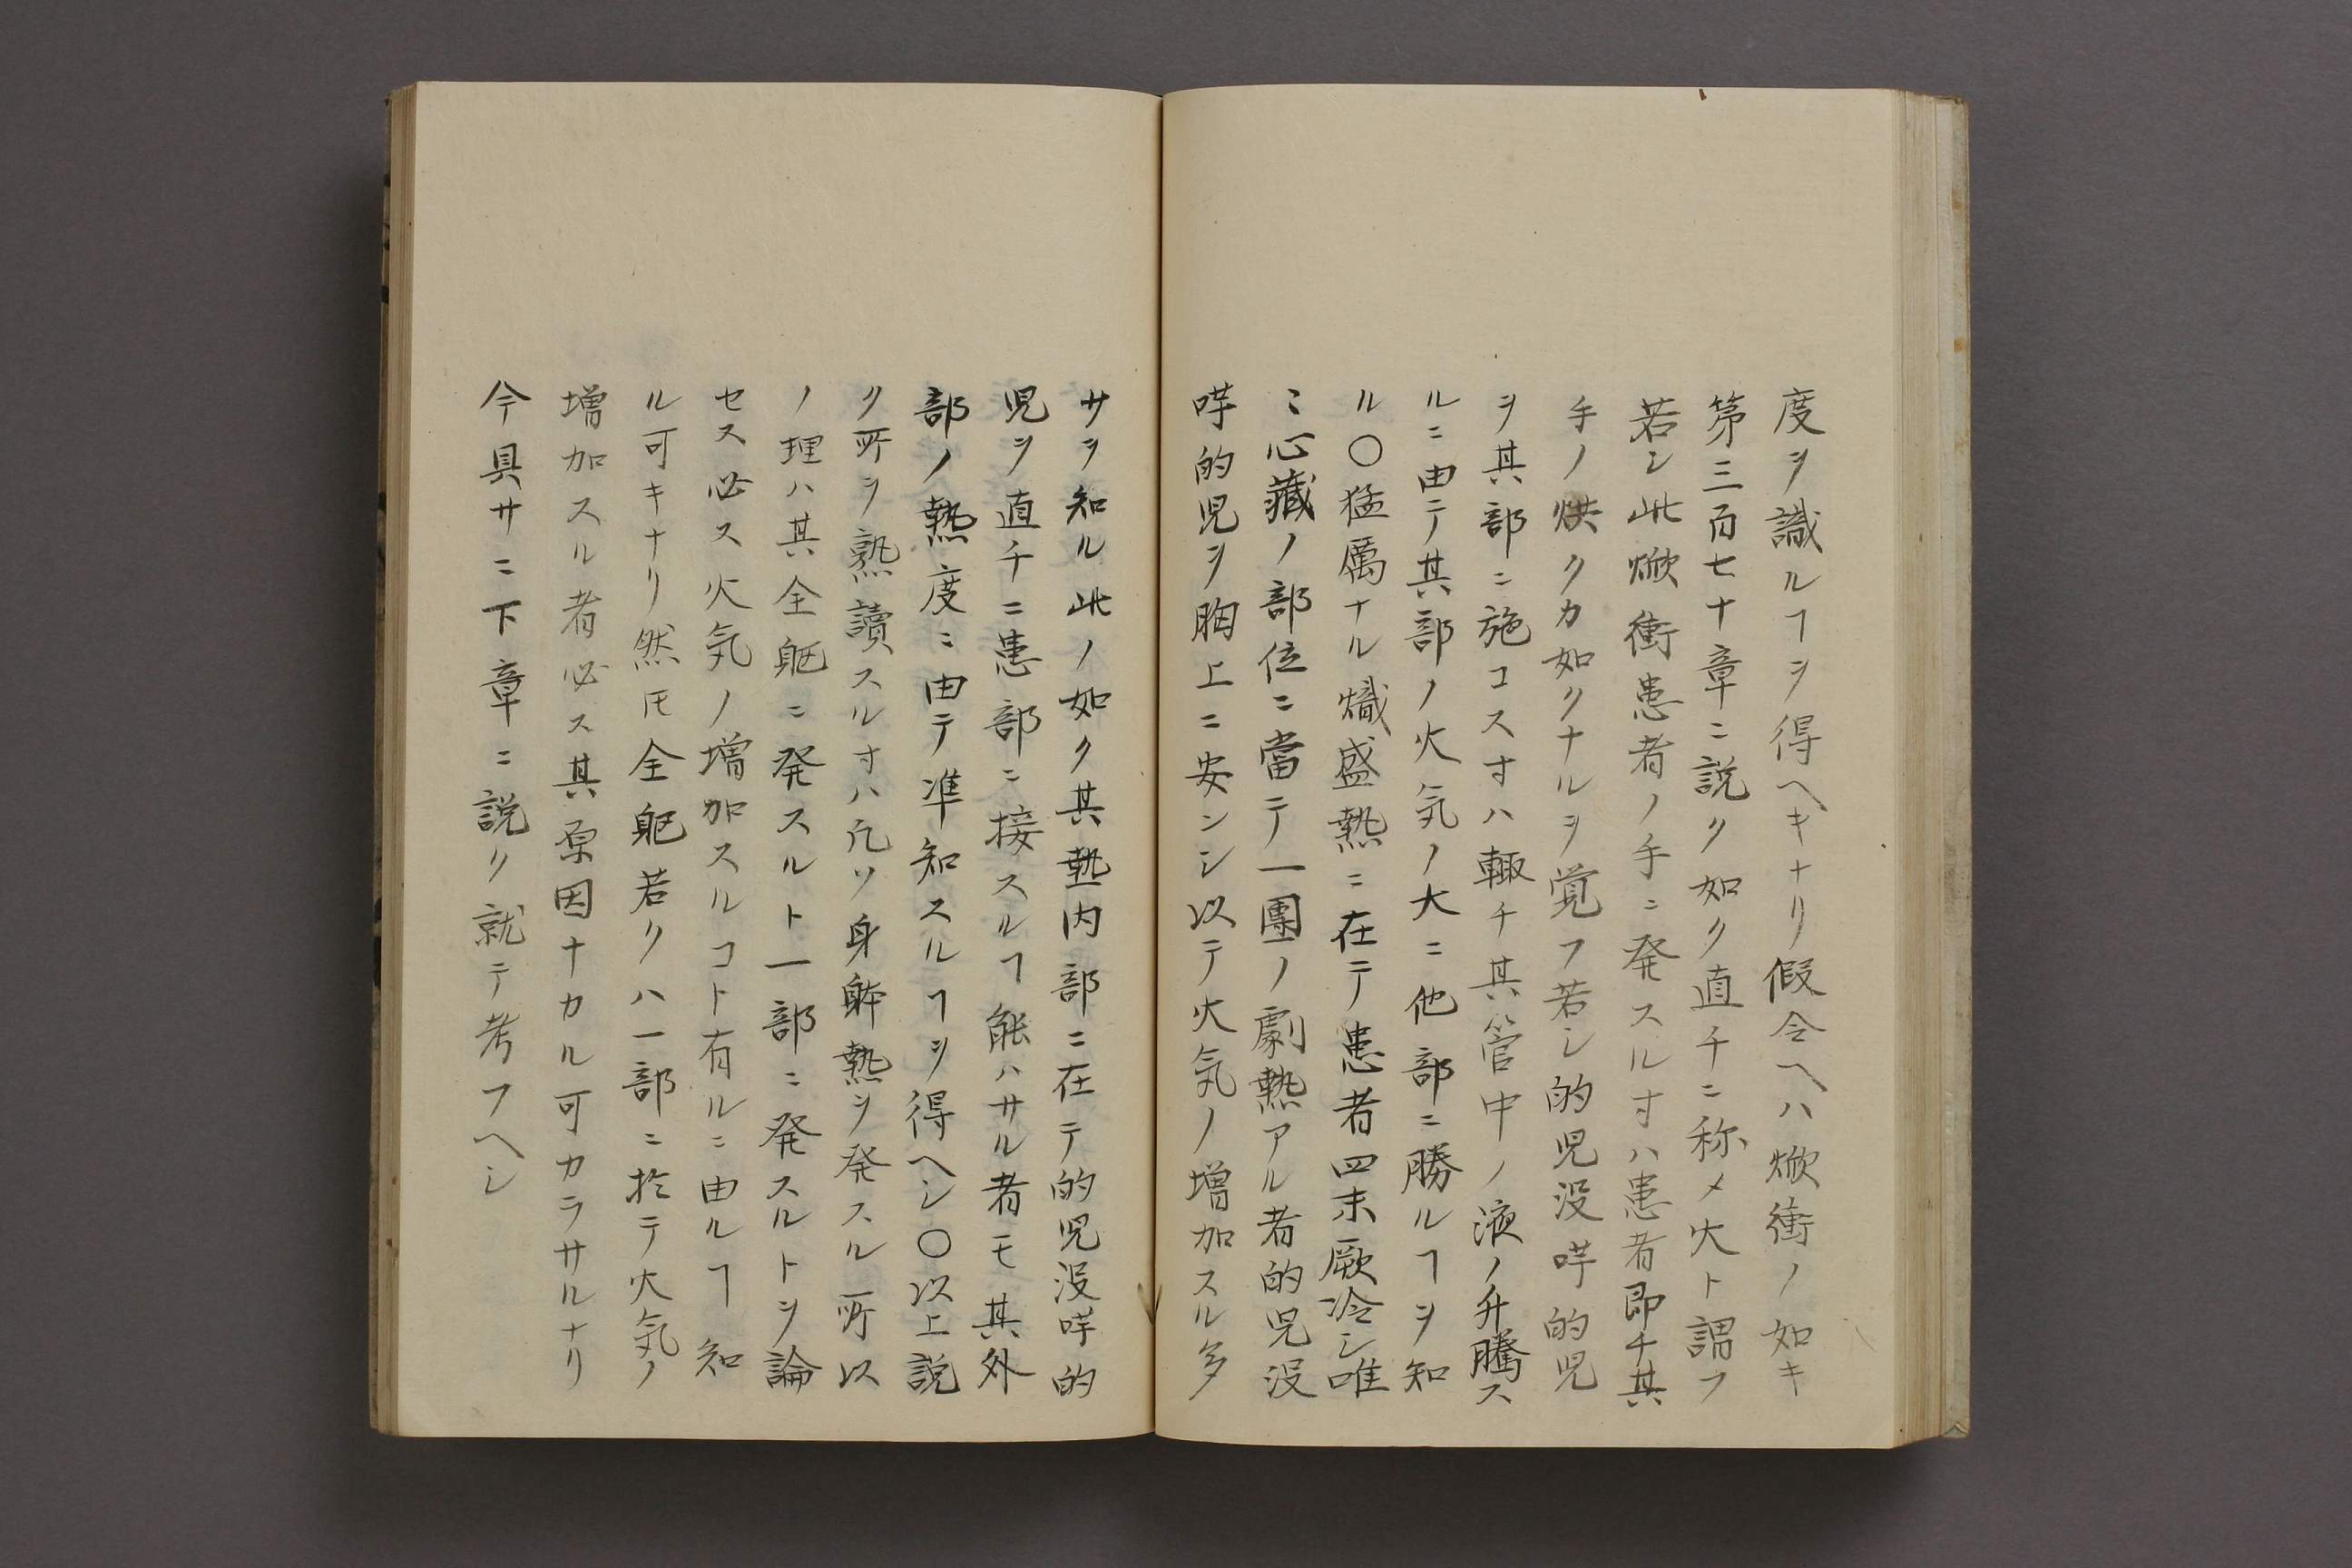 度ヲ識ルヿヲ得ヘキナリ假令ヘハ焮衝ノ如キ
第三百七十章ニ説ク如ク直チニ称メ火ト謂フ
若シ此焮衝患者ノ手ニ発スルヿハ患者即チ其
手ノ烘クカ如クナルヲ覚フ若シ的児没咩的児
ヲ其部ニ施コスオハ輙チ其管中ノ液ノ升騰ス
ルニ由テ其部ノ火気ノ大ニ他部ニ勝ルヿヲ知
ル〇猛厲ナル熾盛熱ニ在テ患者四末厥冷シ唯
ミ心藏ノ部位ニ當テ一團ノ劇熱アル者的児没
咩的児ヲ胸上ニ安ンシ以テ火気ノ増加スル多
サヲ知ル此ノ如ク其熱内部ニ在テ的児没咩的
児ヲ直チニ患部ニ接スルヿ能ハサル者モ其外
部ノ熱度ニ由テ準知スルヿヲ得ヘシ〇以上説
ク所ヲ熟讀スルオハ凡ソ身軆熱ヲ発スル所以
ノ理ハ其全躯ニ発スルト一部ニ発スルトヲ論
セス必ス火気ノ増加スルコト有ルニ由ルヿ知
ル可キナリ然𪜈全躯若クハ一部ニ於テ火気ノ
増加スル者必ス其原因ナカル可カラサルナリ
今具サニ下章ニ説ク就テ考フヘシ